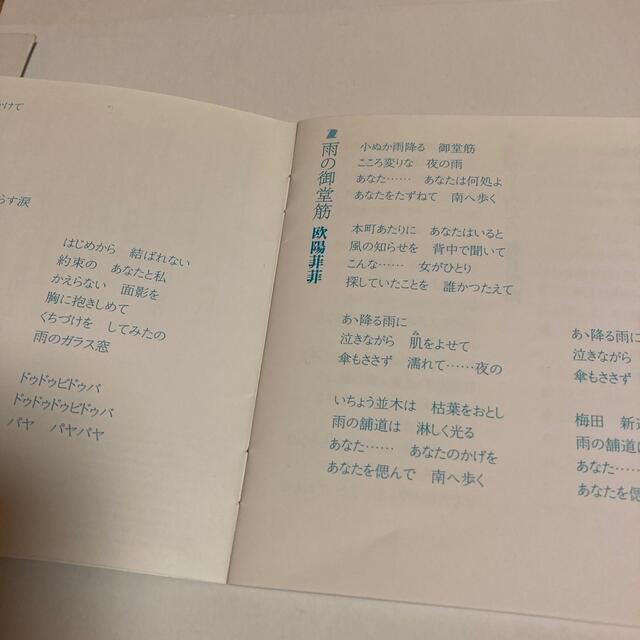 かけて
らす涙
はじめから 結ばれない
約束の あなたと私
かえらない 面影を
胸に抱きしめて
くちづけを してみたの
雨のガラス窓
ドゥドゥビドゥバ
ドゥドゥドゥビドゥバ
バヤ バヤバヤ
2
雨の御堂筋
欧陽菲菲
小ぬか雨降る 御堂筋
こころ変りな 夜の雨
あなた…… あなたは何処よ
あなたをたずねて 南へ歩く
本町あたりに あなたはいると
風の知らせを 背中で聞いて
こんな…… 女がひとり
探していたことを 誰かつたえて
あゝ降る雨に
泣きながら 肌をよせて
み
傘もささず 濡れて……夜の
いちょう並木は 枯葉をおとし
雨の舗道は 淋しく光る
あなた…… あなたのかげを
あなたを偲んで 南へ歩く
あゝ降る雨に
泣きながら
傘もささず
梅田 新道
雨の舗道に
あなた……
あなたを偲